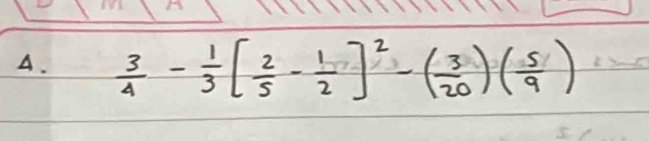 4. 3/4 - 1/3 [2/5 - 1/2]² - (3/20)(5/9)